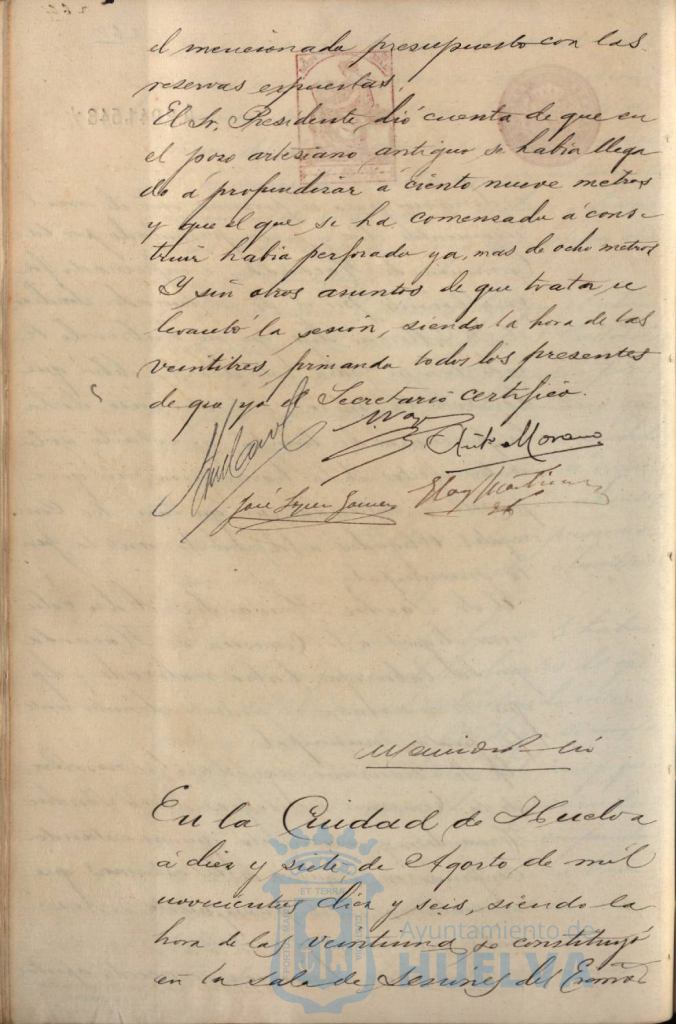 el mencionado presupuesto con las
reservas expuestas.
El Sr. Presidente, dió cuenta de que en
el pozo artesiano, antiguo se habia llega
do á profundizar a ciento nueve metros
y que el que se ha comenzado á cons-
truir habia perforado ya, mas de ocho metros
Y sin otros asuntos de que tratar, se
levantó la sesión, siendo la hora de las
veintitres, firmando todos los presentes
de que yo el Secretario certifico.
Antº Moreno
José López Gómez Eloy Martínez
En la Ciudad de Huelva
á diez y siete, de Agosto de mil
novecientos diez y seis, siendo la
hora de las veintiuna, se constituyó
en la Sala de Sesiones del Excmo
Ayuntamiento de
HUELVA